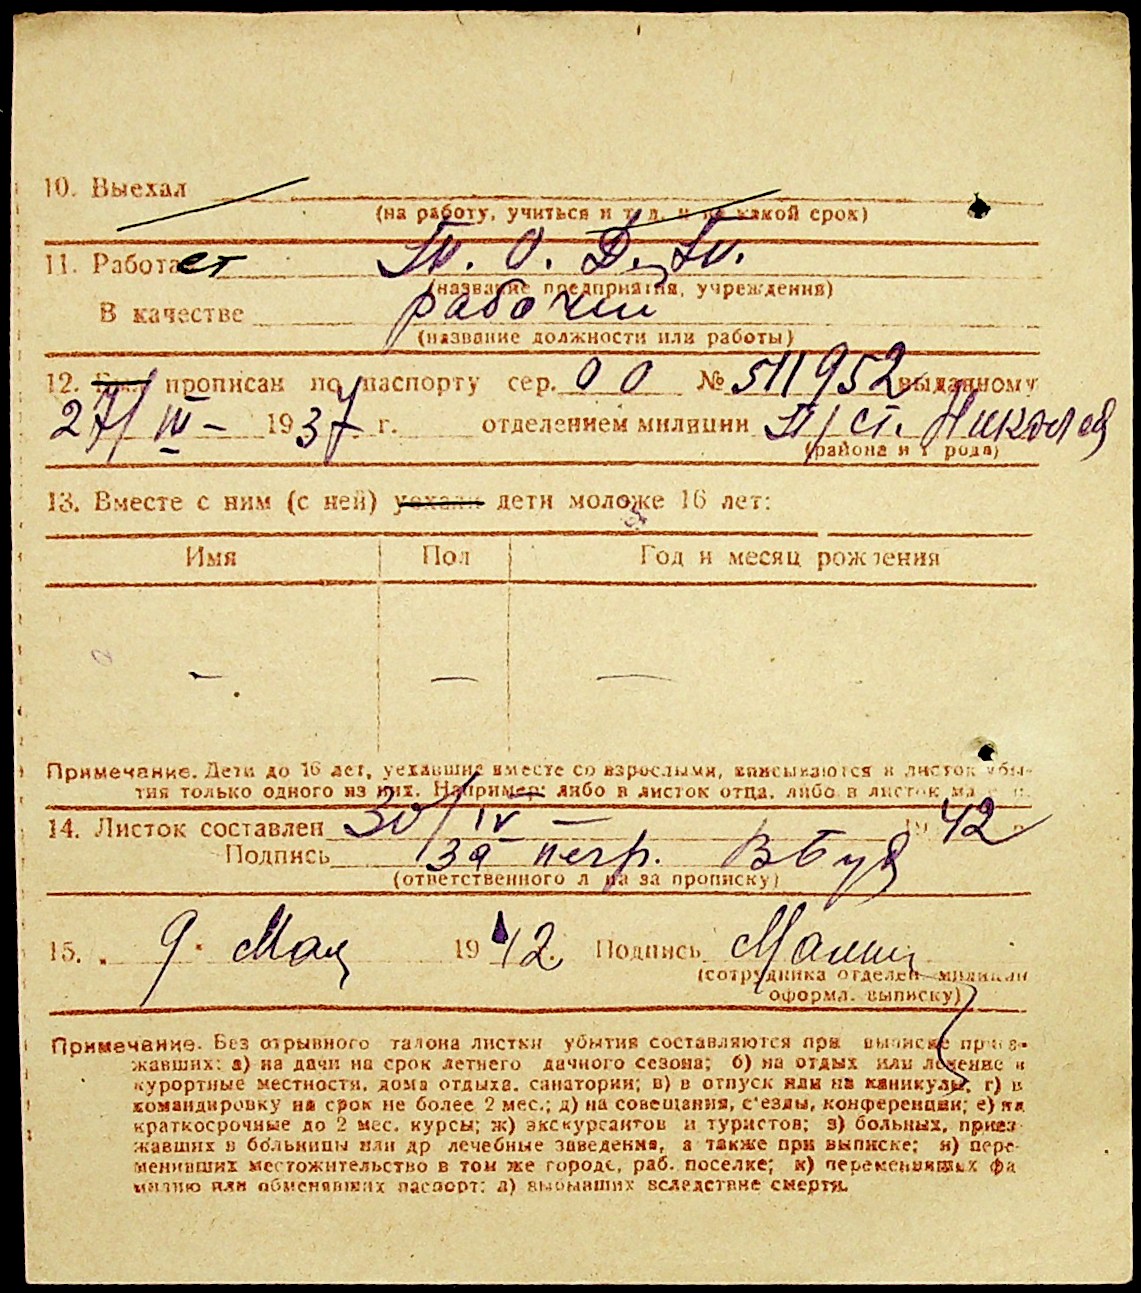 10. Выехал
(на работу, учиться и т. д. и на какой срок)
11. Работает
(название предприятия, учреждения)
В качестве рабочий
(название должности или работы)
12. прописан по паспорту сер. 00 № 511952 выданному
27/IV – 1937 г. отделением милиции
(района и города)
13. Вместе с ним (с ней) уехали дети моложе 16 лет:
Имя Пол Год и месяц рождения
— — —
Примечание. Дети до 16 лет, уехавшие вместе со взрослыми, вписываются в листок убы-
тия только одного из них. Например: либо в листок отца, либо в листок матери.
14. Листок составлен 30/IV – 1942
Подпись за
(ответственного лица за прописку)
15. 9. Мая 1942. Подпись
(сотрудника отделен. милиции
оформл. выписку)
Примечание. Без отрывного талона листки убытия составляются при выписке приез-
жавших: а) на дачи на срок летнего дачного сезона; б) на отдых или лечение в
курортные местности, дома отдыха, санатории; в) в отпуск или на каникулы; г) в
командировку на срок не более 2 мес.; д) на совещания, с'езды, конференции; е) на
краткосрочные до 2 мес. курсы; ж) экскурсантов и туристов; з) больных, приез-
жавших в больницы или др лечебные заведения, а также при выписке; и) пере-
менивших местожительство в том же городе, раб. поселке; к) переменивших фа
милию или обменявших паспорт; л) выбывших вследствие смерти.